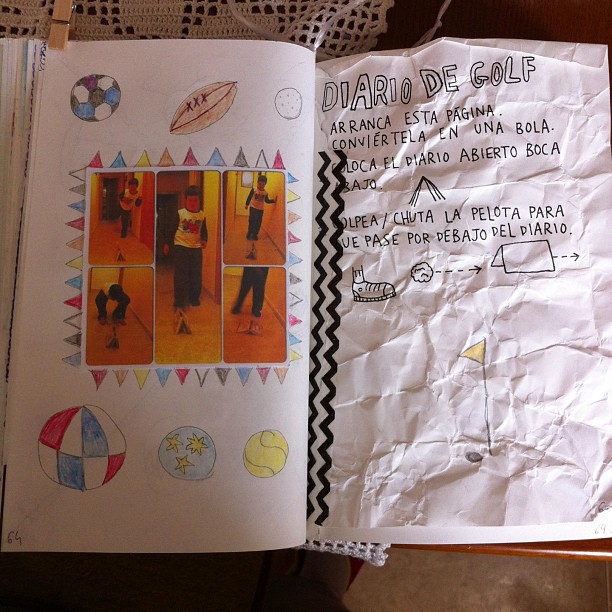 DIARIO DE GOLF
ARRANCA ESTA PÁGINA.
CONVIÉRTELA EN UNA BOLA.
OLOCA EL DIARIO ABIERTO BOCA
BAJO.
OLPEA / CHUTA LA PELOTA PARA
UE PASE POR DEBAJO DEL DIARIO.
XXX
64